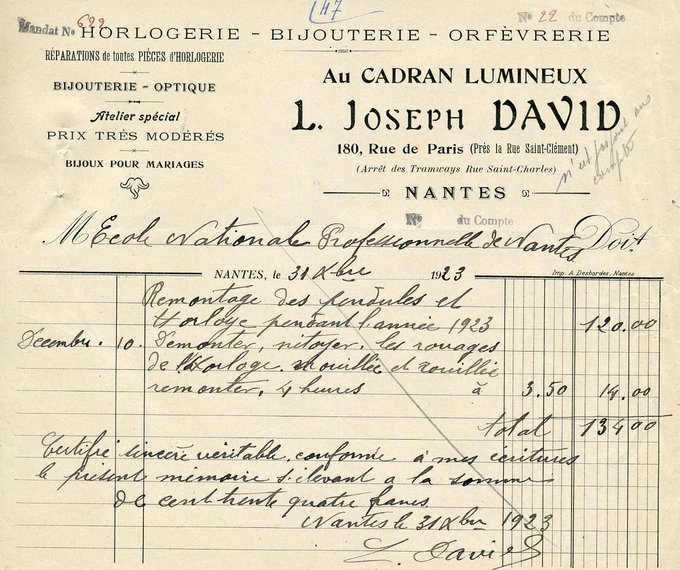 47
Mandat No 622
No 22 du Compte
HORLOGERIE - BIJOUTERIE - ORFÈVRERIE
RÉPARATIONS de toutes PIÈCES d'HORLOGERIE
BIJOUTERIE - OPTIQUE
Atelier spécial
PRIX TRÈS MODÉRÉS
BIJOUX POUR MARIAGES
Au CADRAN LUMINEUX
L. JOSEPH DAVID
180, Rue de Paris (Près la Rue Saint-Clément)
(Arrêt des Tramways Rue Saint-Charles)
NANTES
n'est pas au
compte
No du Compte
M Ecole Nationale Professionnelle de Nantes Doit
NANTES, le 31 Xbre 1923
Imp. A. Desbordes, Nantes
Remontage des pendules et
Horloge pendant l'année 1923 120.00
Decembre. 10. Demonter, netoyer. les rouages
de l'Horloge. mouillée et rouillée
remonter, 4 heures à 3.50 14.00
total 134 00
Certifié sincère véritable. conforme à mes ecritures
le présent mémoire s'élevant a la somme
de cent trente quatre francs.
Nantes le 31 Xbre 1923
L. David